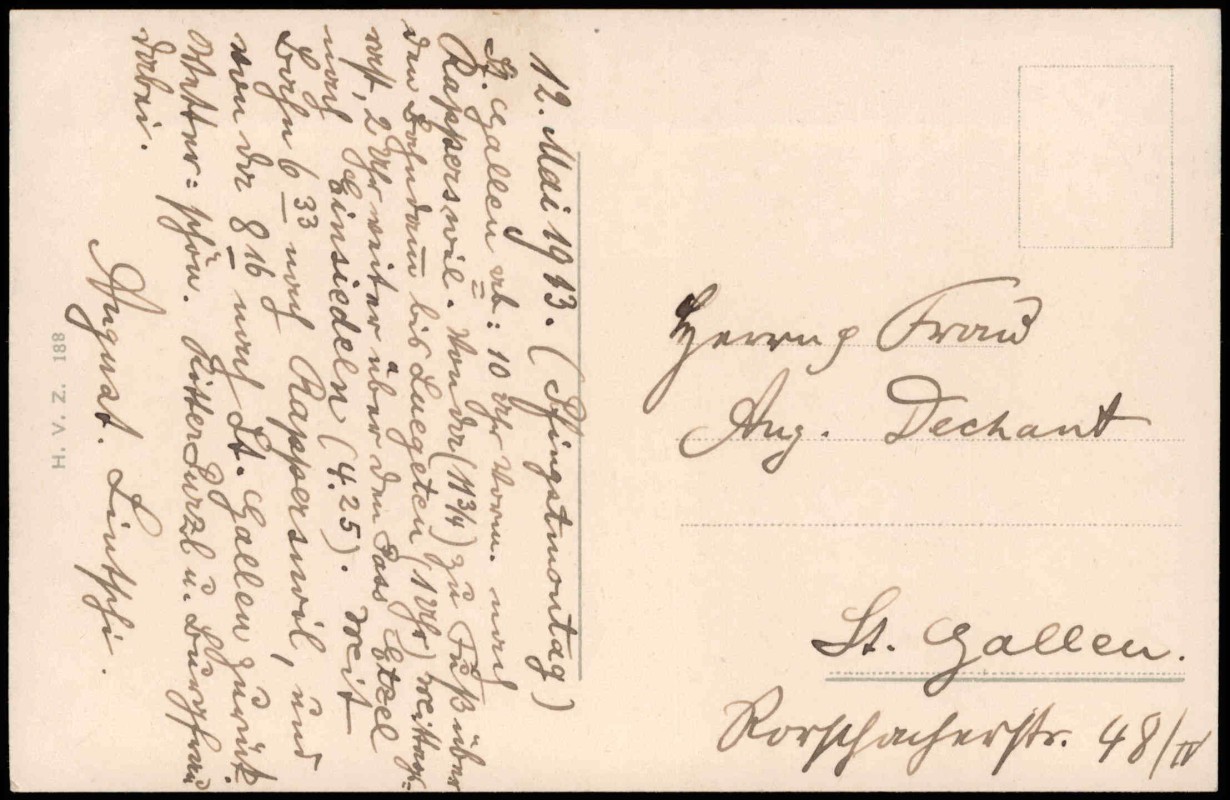 12. Mai 1913. (Pfingstmontag)
St. Gallen ab: 10 Uhr Vorm. nach
Rapperswil. Von da (11¾) zu Fuß über
den Bahndamm bis Luegeten (1 Uhr) Mittag-
rast, 2 Uhr weiter über den Pass Etzel
nach Einsiedeln (4.25). Mit
Bahn 6 33 nach Rapperswil, und
von da 8 16 nach St. Gallen zurück.
Wetter: schön. Ritter u. Burgfrau
dabei.
August.
Herrn & Frau
Aug. Dechant
St. Gallen.
Rorschacherstr. 48/IV
H. V. Z. 188